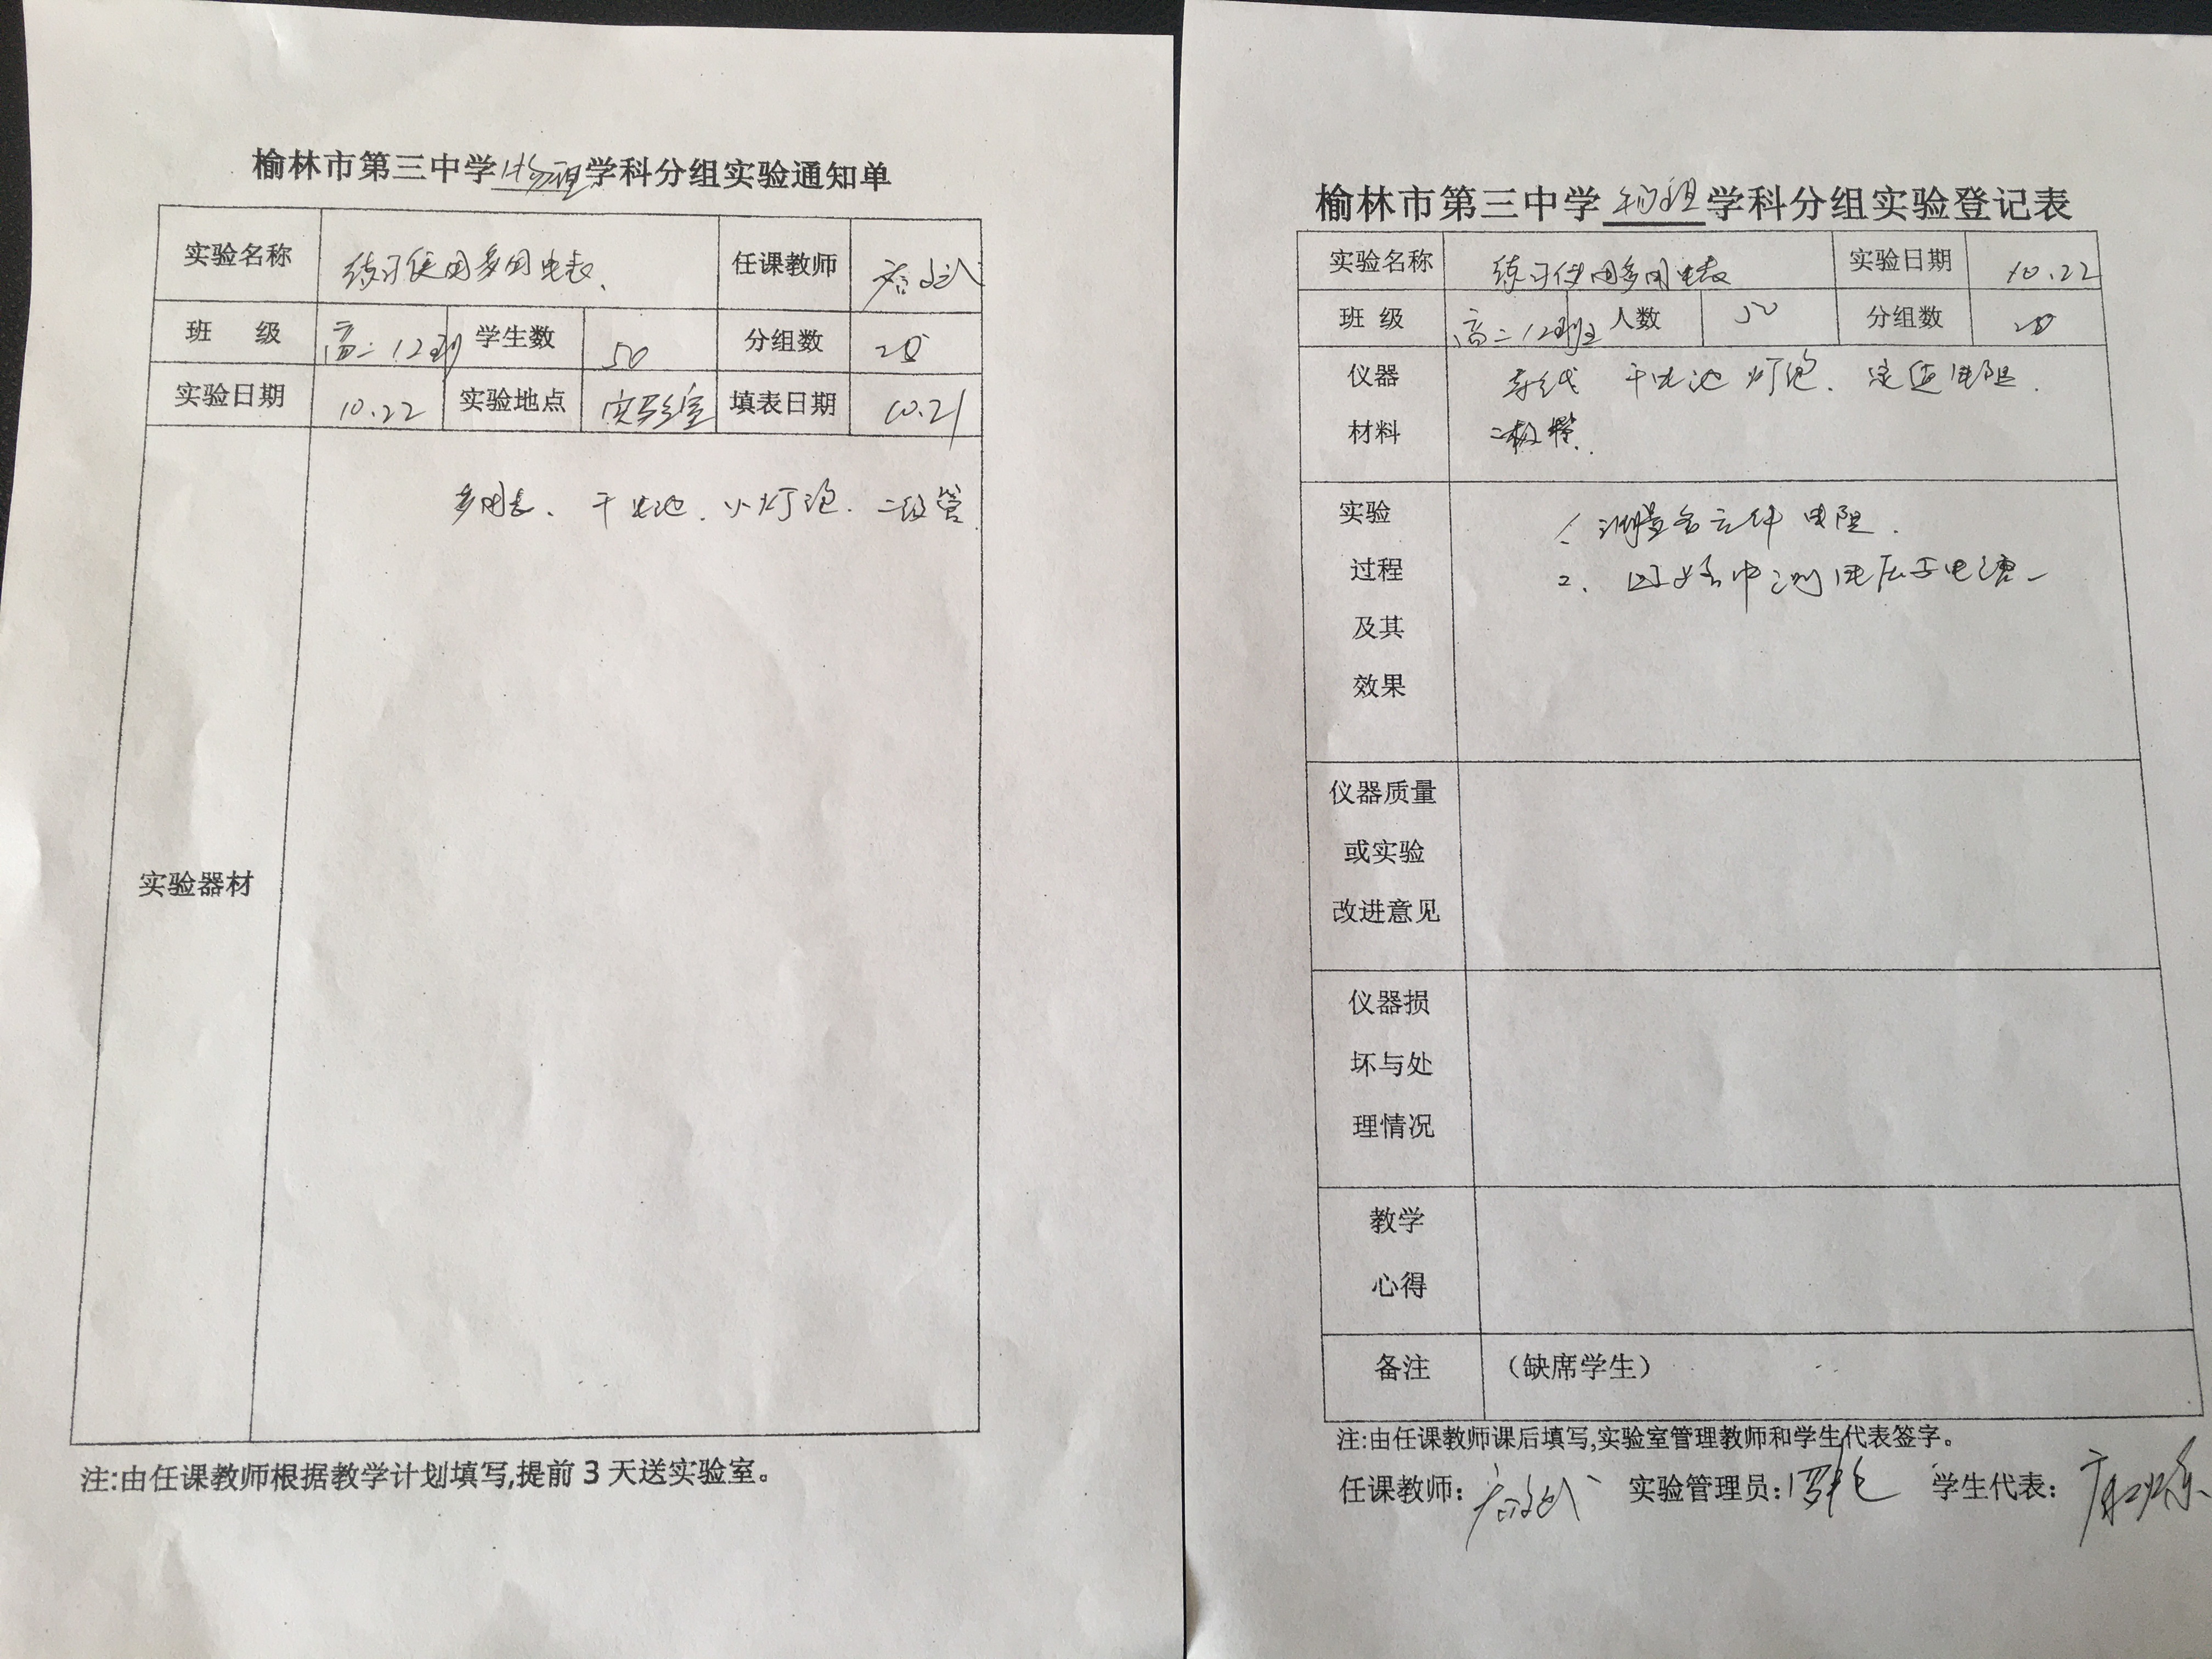 榆林市第三中学物理学科分组实验通知单
实验名称 练习使用多用电表、 任课教师
班 级 高二12班 学生数 50 分组数
实验日期 10.22 实验地点 实验室 填表日期 10.21
实验器材 多用表、干电池、小灯泡、二极管
注:由任课教师根据教学计划填写,提前3天送实验室。
榆林市第三中学物理学科分组实验登记表
实验名称 练习使用多用电表 实验日期 10.22
班 级 高二12班 人数 50 分组数
仪器 导线 干电池 灯泡、定值电阻、
材料 二极管、
实验 1、测量各元件电阻.
过程 2、回路中测电压与电流
及其
效果
仪器质量
或实验
改进意见
仪器损
坏与处
理情况
教学
心得
备注 （缺席学生）
注:由任课教师课后填写,实验室管理教师和学生代表签字。
任课教师: 实验管理员: 学生代表: